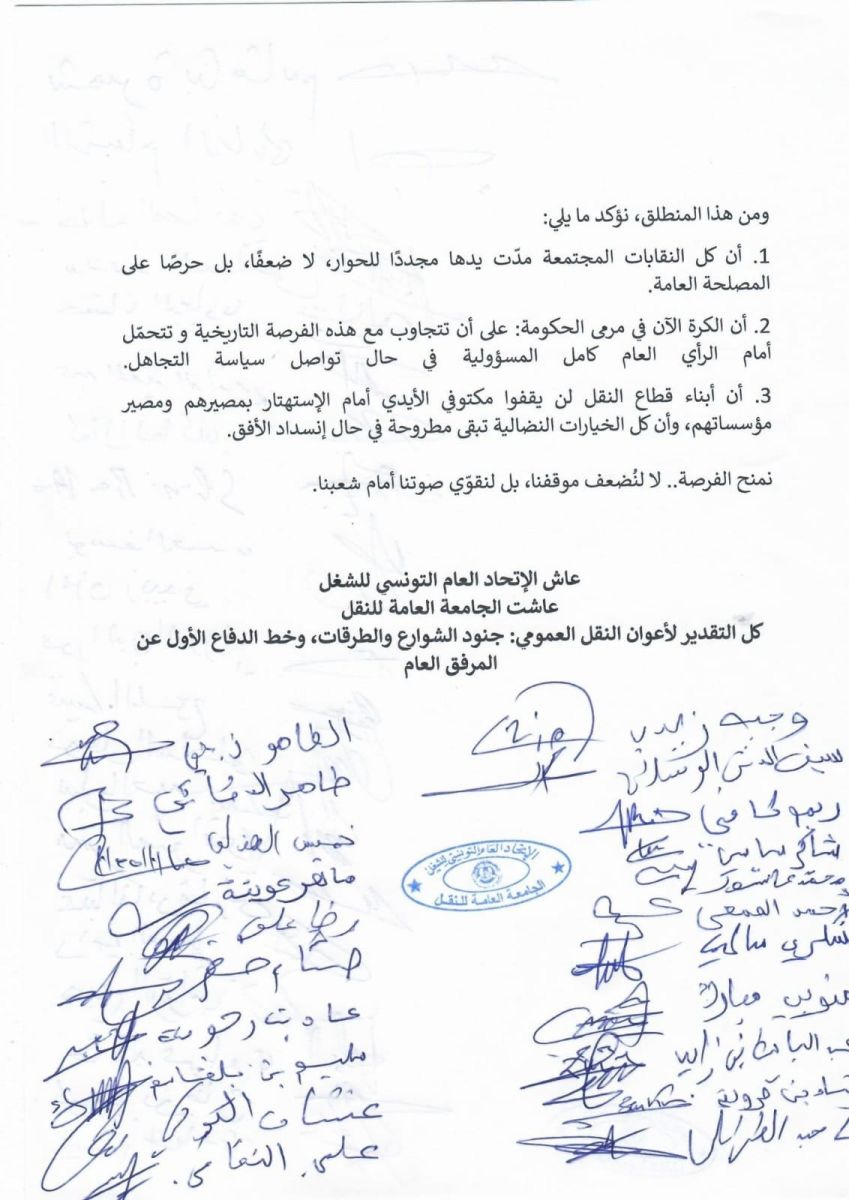 ومن هذا المنطلق، نؤكد ما يلي:
1. أن كل النقابات المجتمعة مدّت يدها مجددًا للحوار، لا ضعفًا، بل حرصًا على
المصلحة العامة.
2. أن الكرة الآن في مرمى الحكومة: على أن تتجاوب مع هذه الفرصة التاريخية و تتحمّل
أمام الرأي العام كامل المسؤولية في حال تواصل سياسة التجاهل.
3. أن أبناء قطاع النقل لن يقفوا مكتوفي الأيدي أمام الإستهتار بمصيرهم ومصير
مؤسساتهم، وأن كل الخيارات النضالية تبقى مطروحة في حال إنسداد الأفق.
نمنح الفرصة.. لا لنُضعف موقفنا، بل لنقوّي صوتنا أمام شعبنا.
عاش الإتحاد العام التونسي للشغل
عاشت الجامعة العامة للنقل
كل التقدير لأعوان النقل العمومي: جنود الشوارع والطرقات، وخط الدفاع الأول عن
المرفق العام
وجيه زيدي
سيف الدين
شاكر
محمد عاشور
شكري
مبارك
الإتحاد العام التونسي للشغل
الجامعة العامة للنقل
الطاهر
طاهر
خميس
ماهر عوينة
رضا
هشام
عماد بن رحومة
سليم بن بلقاسم
غسان
علي